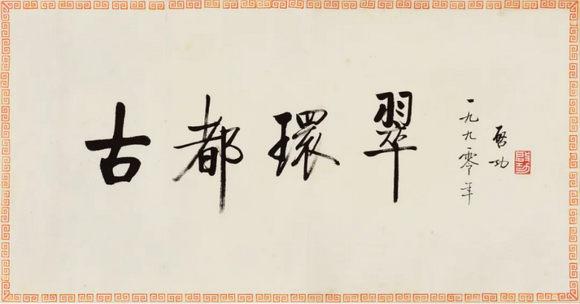 古都環翠
一九九零年
啓功